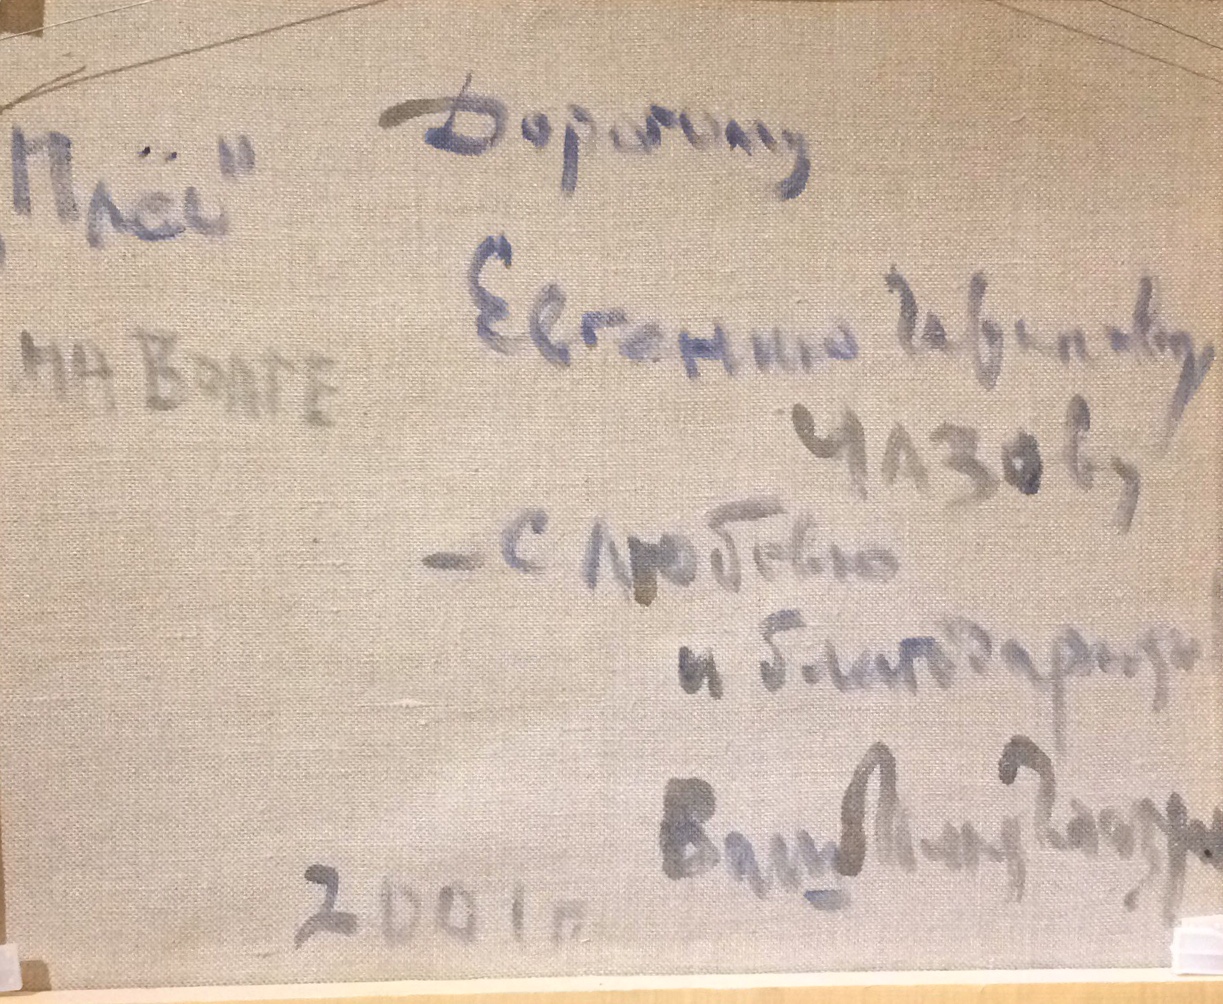 „Плёс"
на Волге
Дорогому
Евгению Ивановичу
ЧАЗОву
– С любовью
и благодарно
Ваш
2001 г